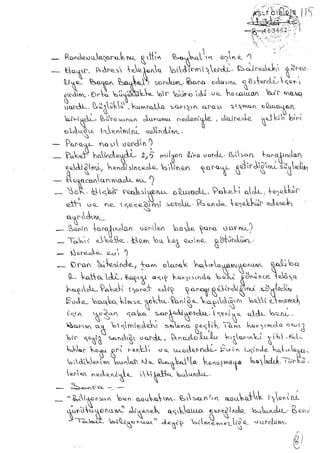 115
— Randevulaşarak mı gittin Baykal'ın evine ?
— Hayır. Adresi telefonla bildirmişlerdi. Dairedeki görev-
Üye Bayan Baykal'ı sordum. Bana odasını gösterdi. İçeri
girdim. Orta büyüklükte bir büro idi ve kocaman bir masa
vardı. Gözlüklü kumralla sarışın arası şişman olmayan
biriydi. Büronun durumu nedeniyle, dairede yetkili biri
olduğu izlenimini edindim.
— Parayı nasıl verdin ?
— Paket halindeydi. 2,5 milyon lira vardı. Bilsan tarafından
geldiğimi, kendisine bilinen parayı getirdiğimi söyledim
— Heyecanlanmadı mı ?
— Yok. Hiçbir reaksiyonu olmadı. Paketi aldı, teşekkür
etti ve ne içeceğimi sordu. Ben de teşekkür ederek
ayrıldım.
— Senin tarafından verilen başka para var mı?
— Tabii elbette. Hem bu kez evine götürdüm.
— Nerede evi ?
— Oran Sitesinde, tam olarak hatırlayamıyorum galiba
2. katta idi. Kapıyı açıp karşısında beni görünce telaşa
kapıldı. Paketi işaret edip parayı getirdiğimi söyledim
Evde başka kimse yoktu. Paniğe kapıldığını belli etmemek
için yoğun çaba sarfediyordu. İçeriye aldı beni.
Salona geçtik. Tam karşımda ceviz
bir çeyiz sandığı vardı, Anadolu
renkli ve moderndi. Evin içinde
bildiklerim bunlar. Baykal'la konuşmaya başladık.
nedeniyle iltifatta bulundu.
— Sonra — —
— "Biliyorsun ben avukatım. Bilsan'ın avukatlık işlerini
yürütüyorum" diyerek açıklama gereğinde bulundu. Ben
"Tabii biliyorum" deyip bilmemezliğe vurdum.